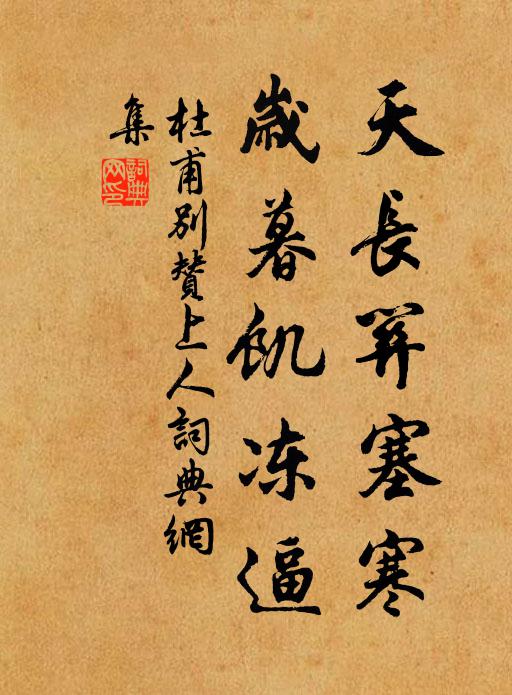 天長關塞寒
歲暮飢凍逼
杜甫別贊上人詞典網
集
詞典網印